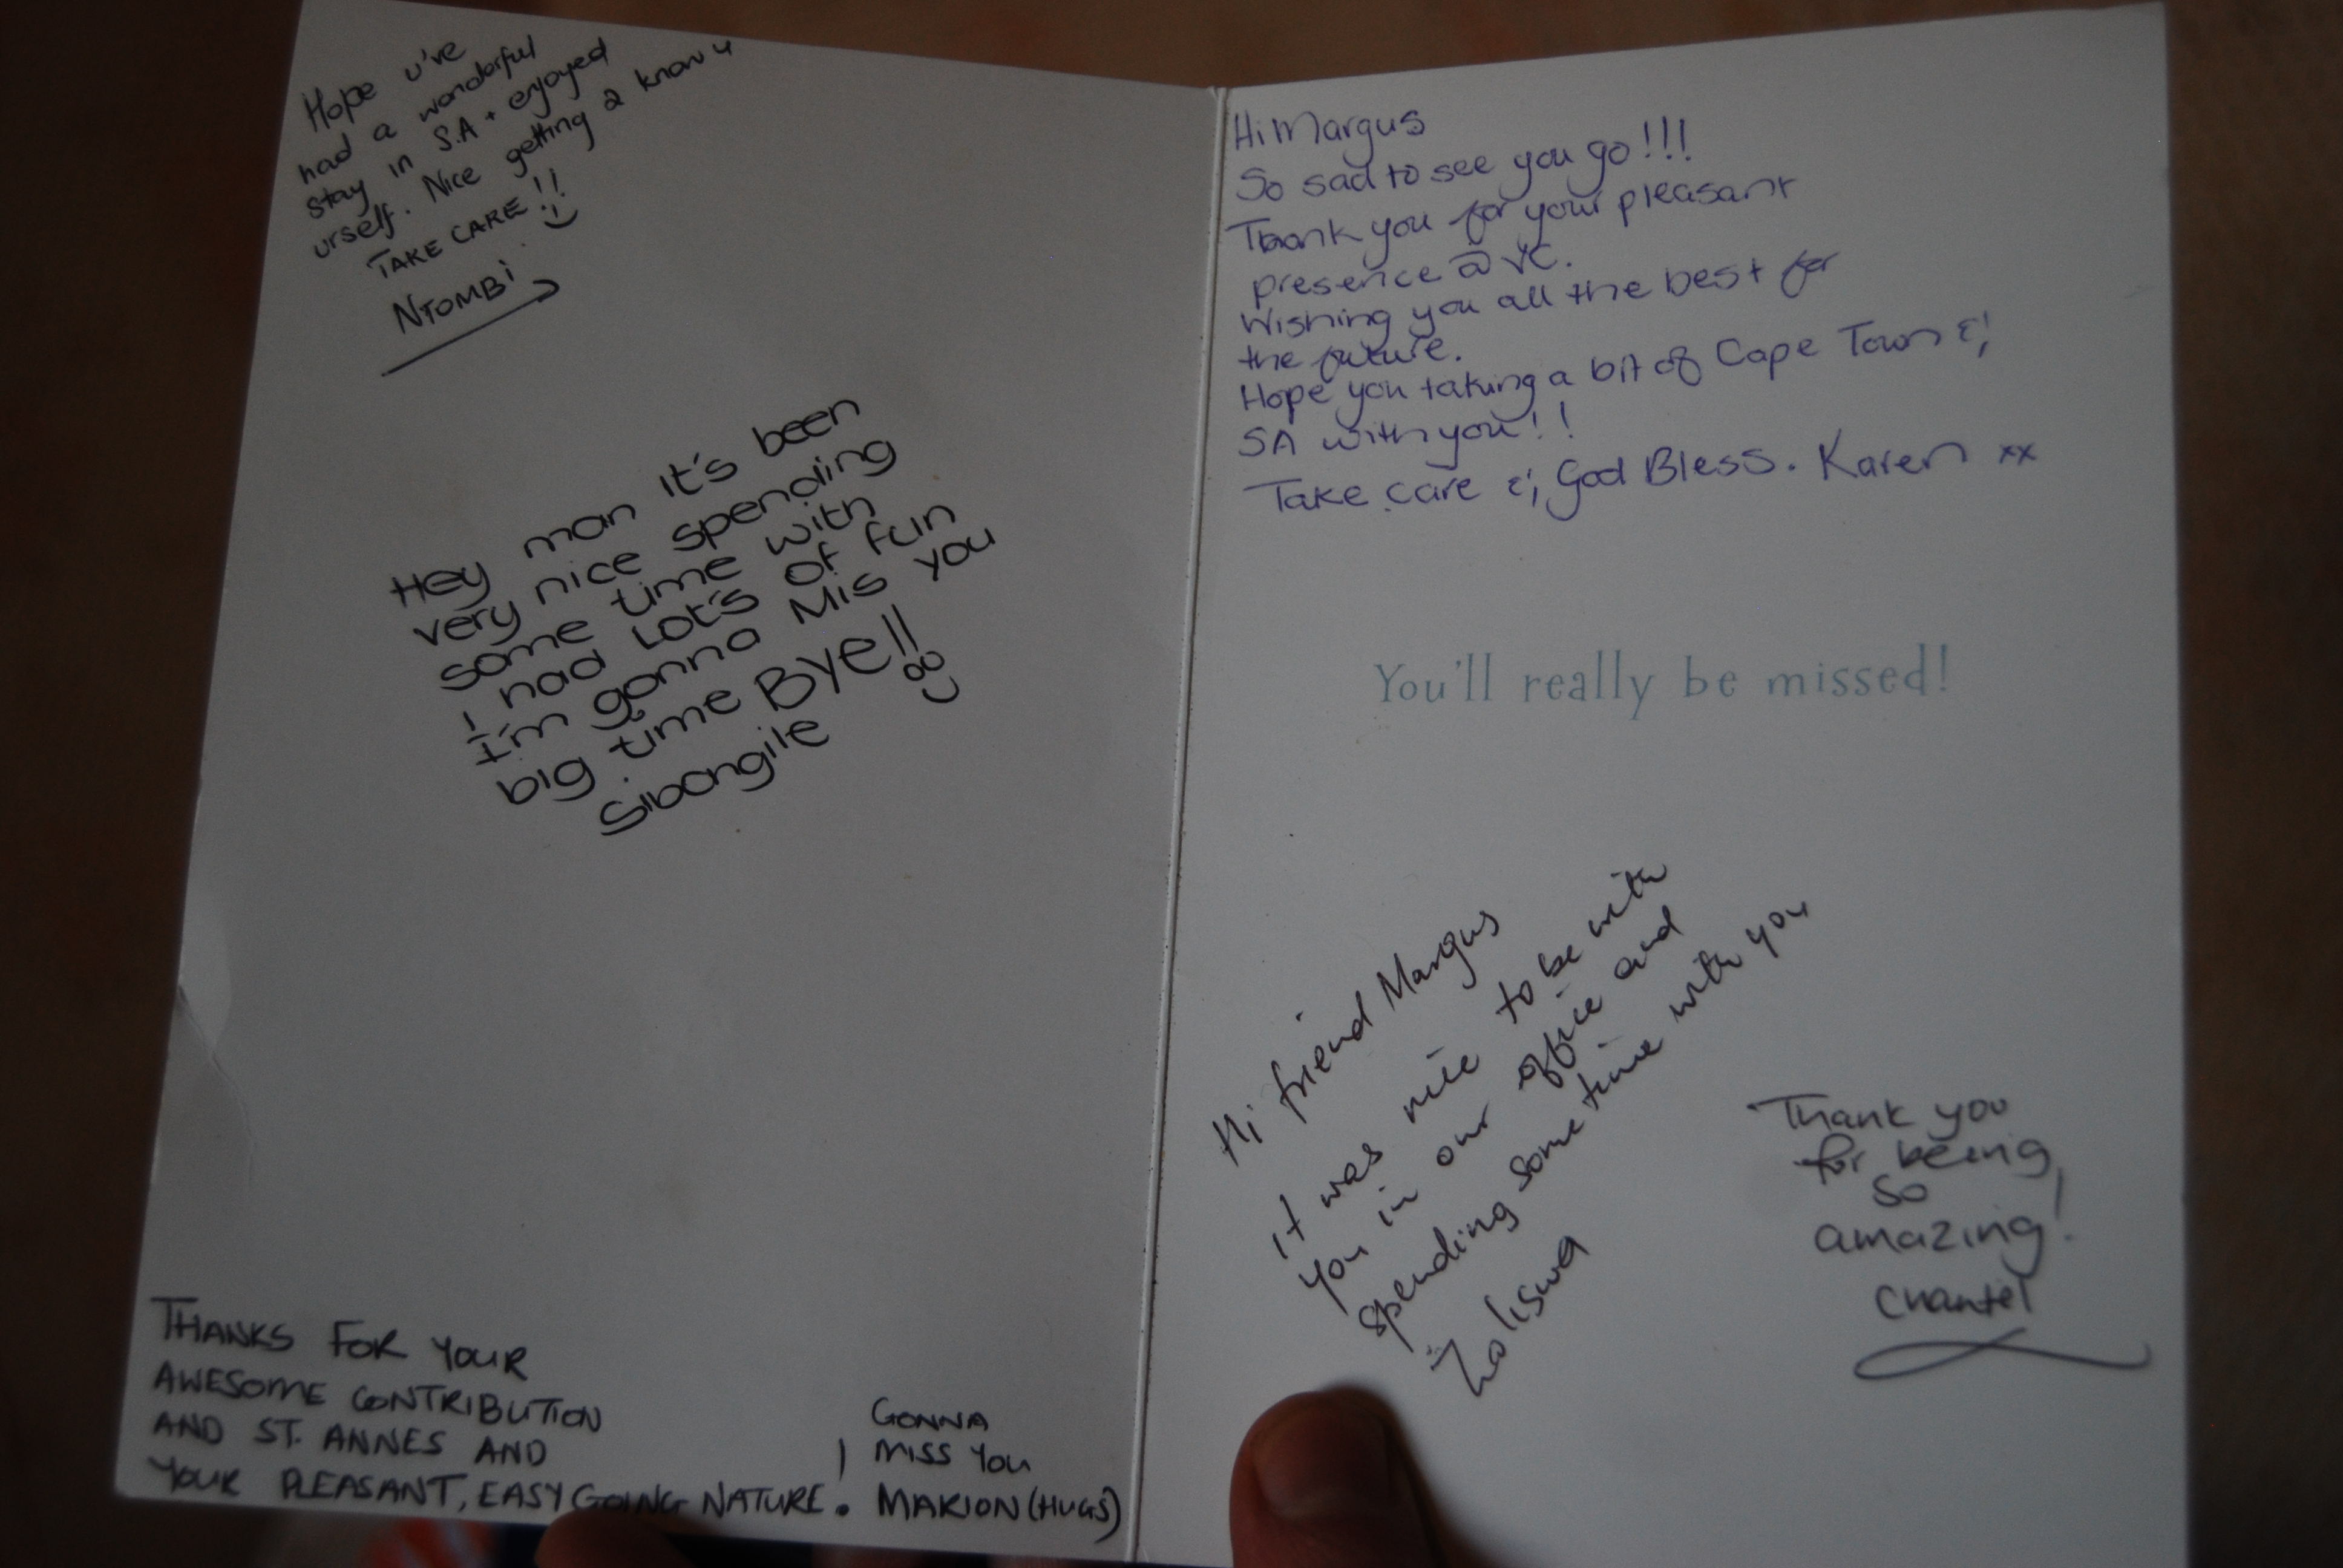 Hope u've
had a wonderful
stay in S.A + enjoyed
urself. Nice getting 2 know u
TAKE CARE!!
NTOMBi
Hey man it's been
very nice spending
some time with
i had Lot's of fun
I'm gonna Mis you
big time Bye!!
Sibongile
THANKS FOR YOUR
AWESOME CONTRIBUTION
AND ST. ANNES AND
YOUR PLEASANT, EASY GOING NATURE!
GONNA
MISS YOU
MARION (HUGS)
Hi Margus
So sad to see you go!!!
Thank you for your pleasant
presence @ YC.
Wishing you all the best for
the future.
Hope you taking a bit of Cape Town &
SA with you!!
Take care & God Bless. Karen xx
You'll really be missed!
Hi friend Margus
it was nice to be with
you in our office and
spending some time with you
Zoliswa
Thank you
for being
so
amazing!
Chantel